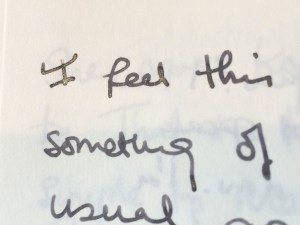 I feel this
something of
usual